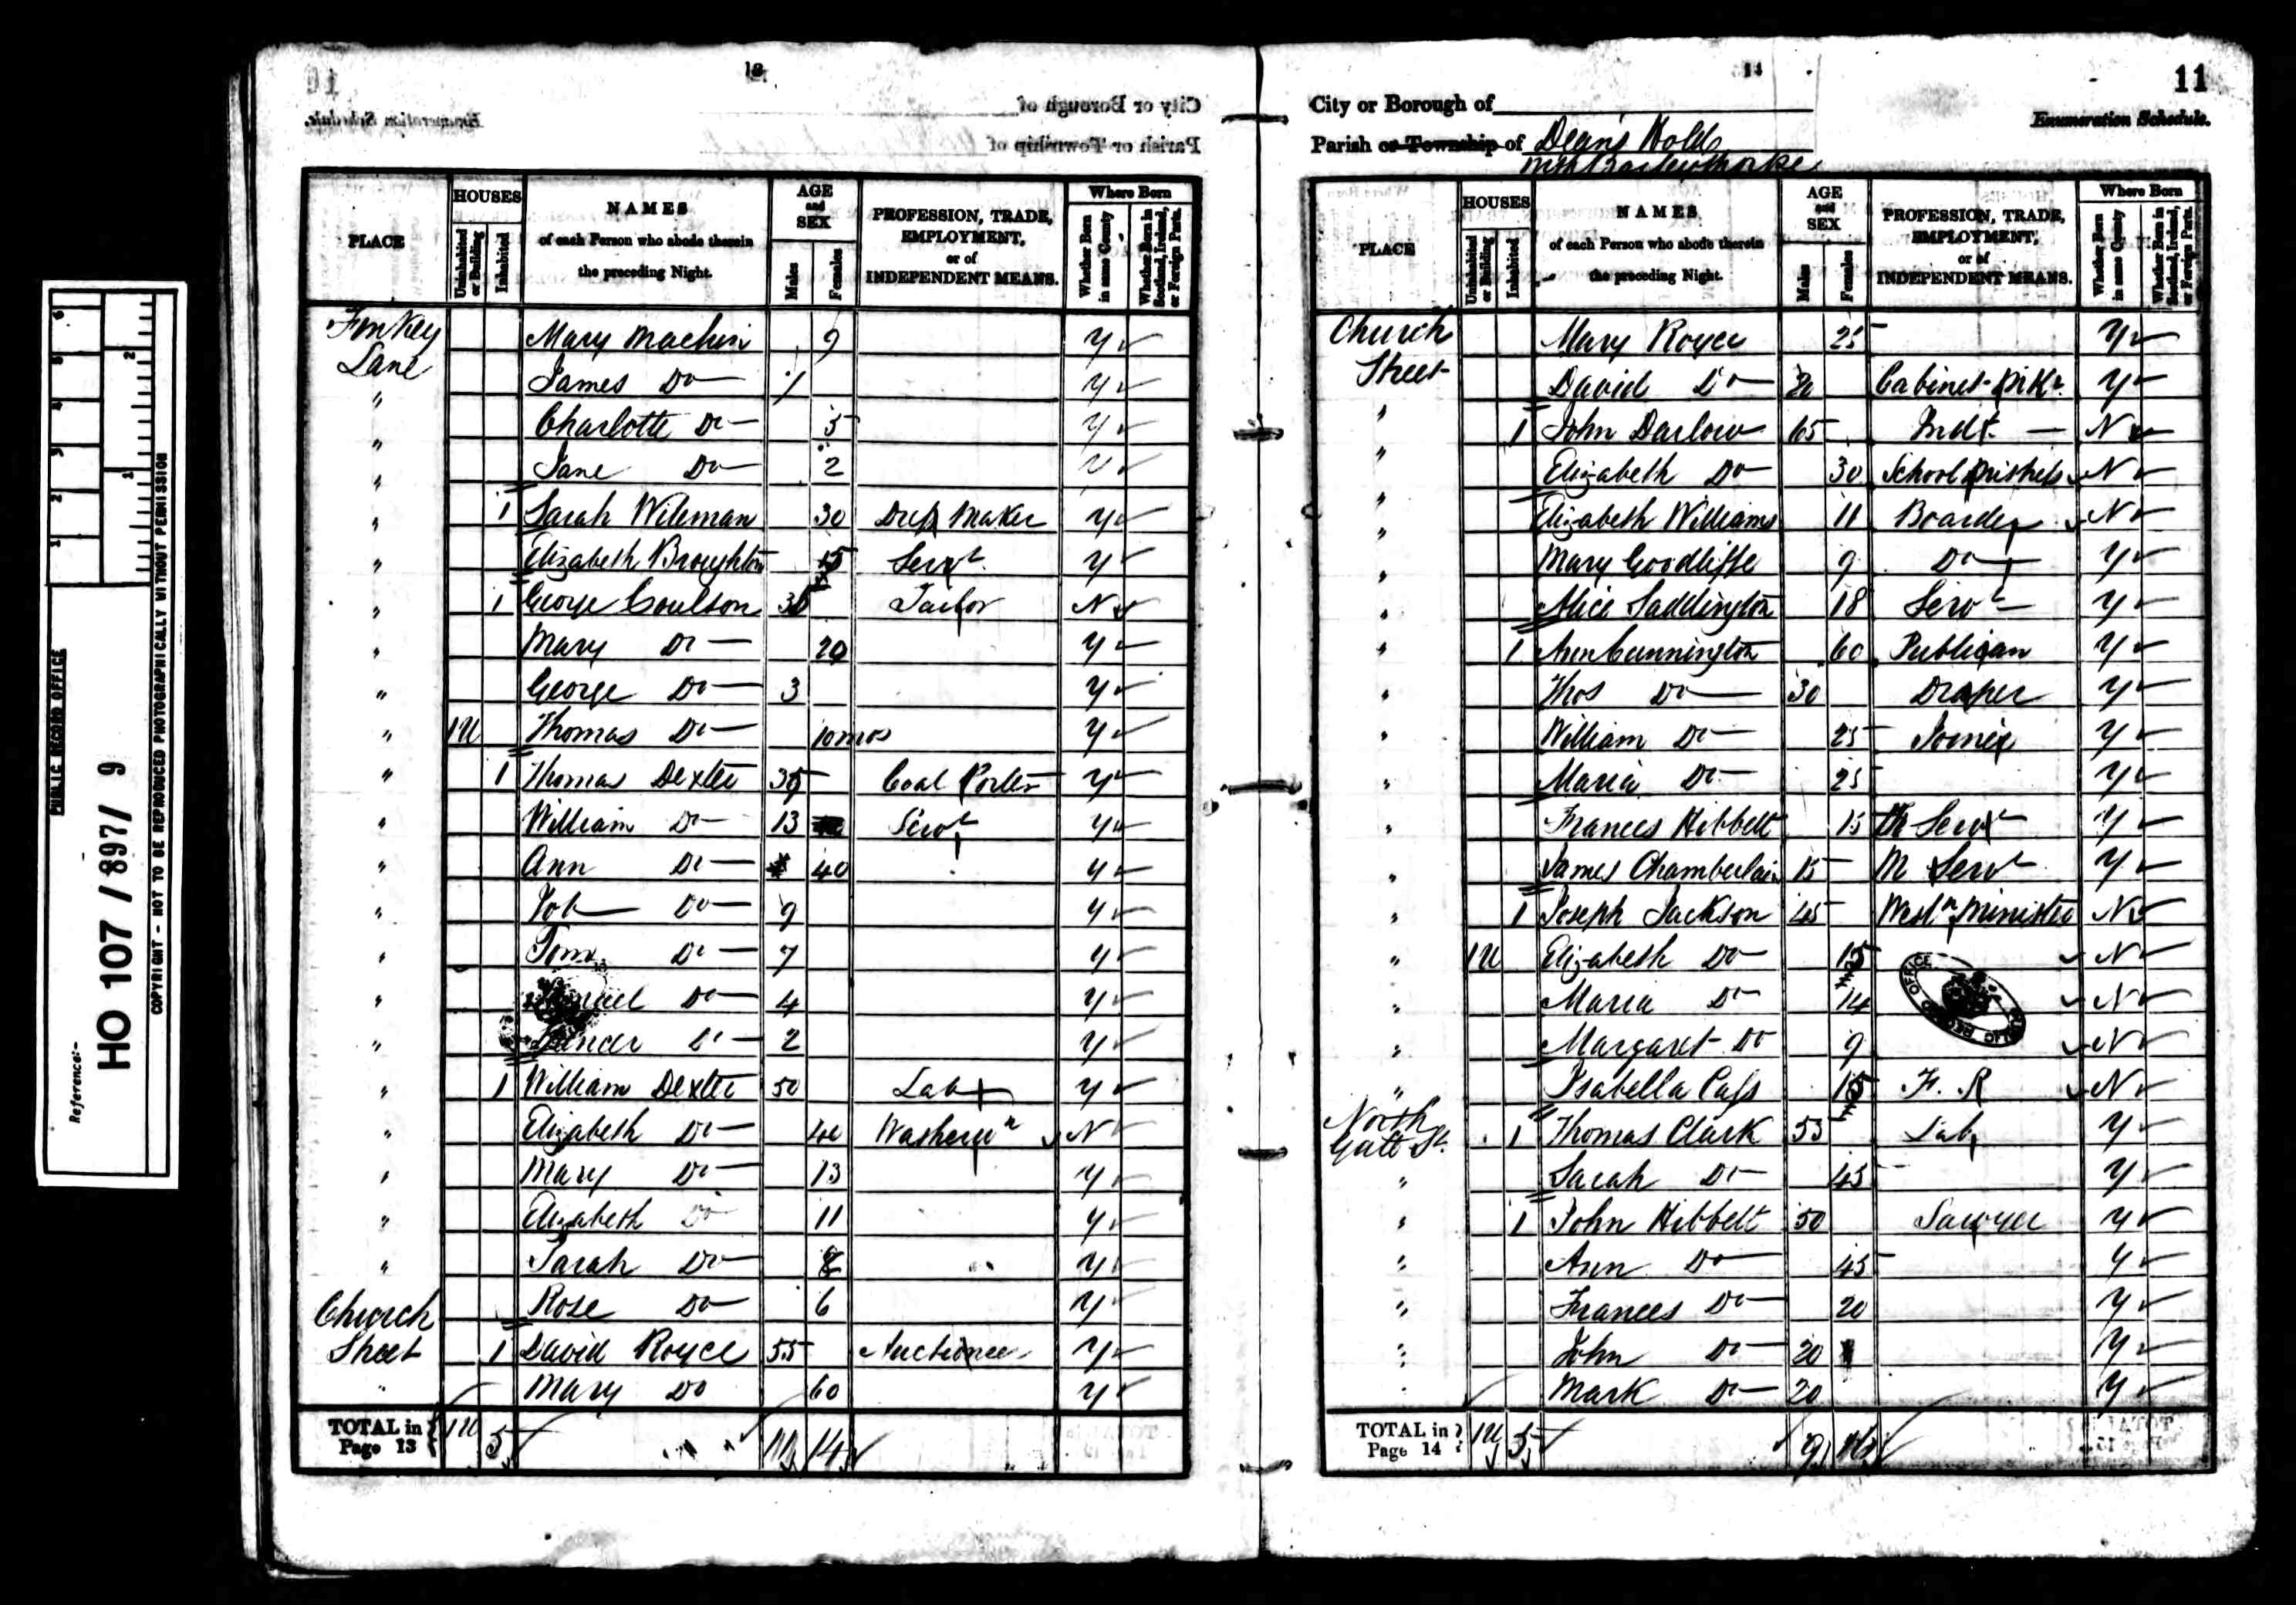 PUBLIC RECORD OFFICE
Reference:-
HO 107 / 897 / 9
COPYRIGHT - NOT TO BE REPRODUCED PHOTOGRAPHICALLY WITHOUT PERMISSION
1 2 3 4 5 6
1 2
City or Borough of
Parish or Township of
Enumeration Schedule.
PLACE
HOUSES
Uninhabited or Building
Inhabited
NAMES
of each Person who abode therein
the preceding Night.
AGE and SEX
Males
Females
PROFESSION, TRADE, EMPLOYMENT, or of INDEPENDENT MEANS.
Where Born
Whether Born in same County
Whether Born in Scotland, Ireland, or Foreign Parts.
Mary Machin 9 Y
Lane James Do 7 Y
" Charlotte Do 5 Y
" Jane Do 2 Y
" 1 Sarah Wileman 30 Dress Maker Y
" Elizabeth Broughton 15 Servt Y
" 1 George Coulson 30 Tailor N
" Mary Do 20 Y
" George Do 3 Y
" 1U Thomas Do 10 mos Y
" 1 Thomas Dexter 35 Coal Porter Y
" William Do 13 Servt Y
" Ann Do 40 Y
" Job Do 9 Y
" Tom Do 7 Y
" Do 4 Y
" Do 2 Y
" 1 William Dexter 50 Lab Y
" Elizabeth Do 40 Washerwn N
" Mary Do 13 Y
" Elizabeth Do 11 Y
" Sarah Do 8 Y
Church Rose Do 6 Y
Street 1 David Royce 55 Auctioneer Y
" Mary Do 60 Y
TOTAL in Page 13 1U 5 11 14
14
11
City or Borough of
Enumeration Schedule.
Parish or Township of Deans Hold
PLACE
HOUSES
Uninhabited or Building
Inhabited
NAMES
of each Person who abode therein
the preceding Night.
AGE and SEX
Males
Females
PROFESSION, TRADE, EMPLOYMENT, or of INDEPENDENT MEANS.
Where Born
Whether Born in same County
Whether Born in Scotland, Ireland, or Foreign Parts.
Church Mary Royce 25 Y
Street David Do 20 Cabinet Mkr Y
" 1 John Darlow 65 Indt. N
" Elizabeth Do 30 School Mistress N
" Elizabeth Williams 11 Boarder N
" Mary Goodliffe 9 Do Y
" Alice Saddington 18 Servt Y
" 1 Ann Cunnington 60 Publican Y
" Thos Do 30 Draper Y
" William Do 25 Joiner Y
" Maria Do 25 Y
" Frances Hibbett 15 Servt Y
" James Chamberlain 15 M Servt Y
" 1 Joseph Jackson 45 Wesln Minister N
" 1U Elizabeth Do 15 N
" Maria Do 14 N
" Margaret Do 9 N
" Isabella Cass 15 F. S N
North Gate St. 1 Thomas Clark 55 Lab Y
" Sarah Do 45 Y
" 1 John Hibbett 50 Sawyer Y
" Ann Do 45 Y
" Frances Do 20 Y
" John Do 20 Y
" Mark Do 20 Y
TOTAL in Page 14 1U 5 9 16